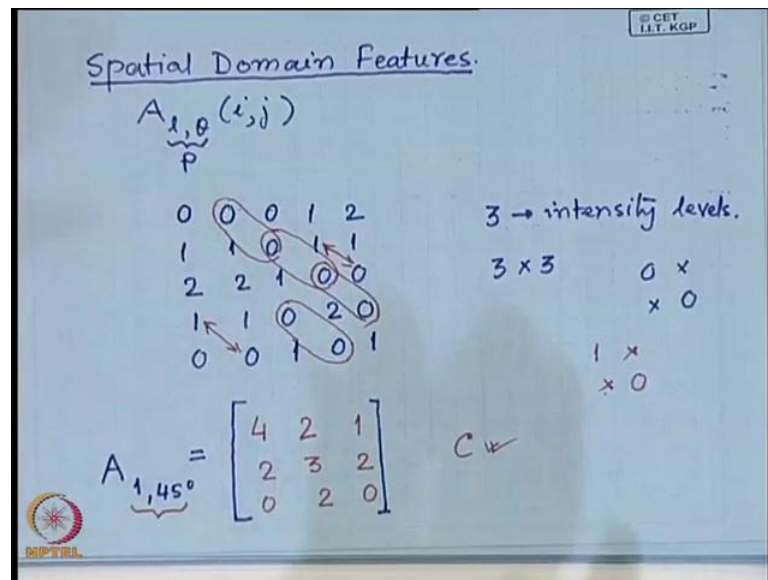 © CET
I.I.T. KGP
Spatial Domain Features.
A l,θ (i,j)
P
0 0 0 1 2
1 1 0 1 1
2 2 1 0 0
1 1 0 2 0
0 0 1 0 1
3 → intensity levels.
3 × 3
0 ×
× 0
1 ×
× 0
A 1,45° = [ 4 2 1
2 3 2
0 2 0 ]
C
NPTEL